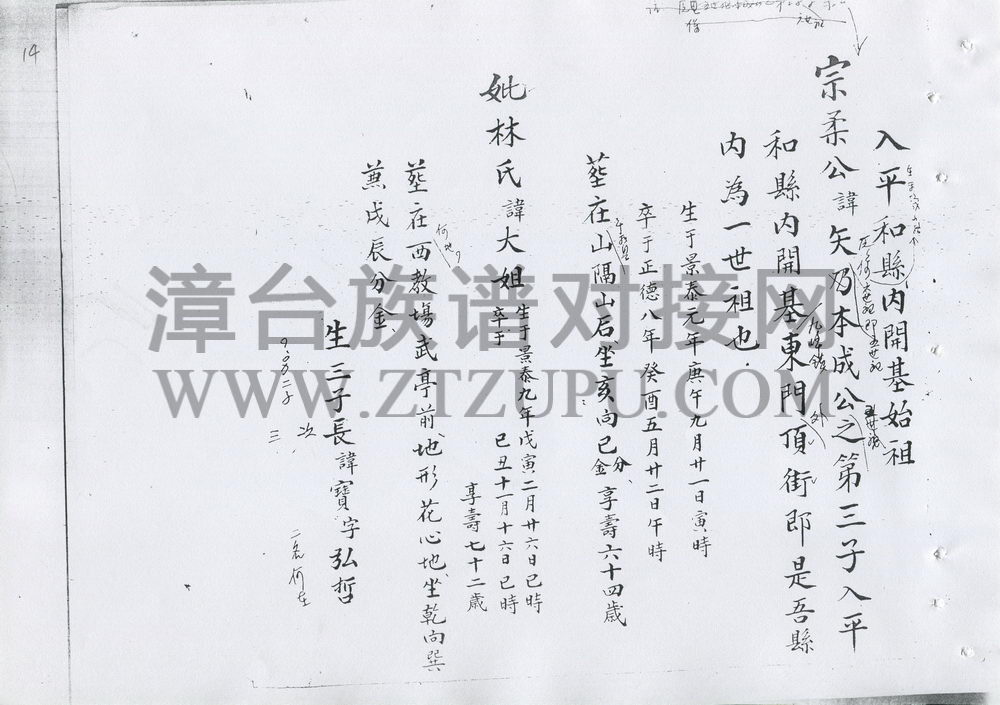 入平和縣内開基始祖
宗柔公諱矢乃本成公之第三子入平
和縣内開基東門頂街即是吾縣
内為一世祖也
生于景泰元年庚午九月廿一日寅時
卒于正德八年癸酉五月廿二日午時
塟在山隔山后坐亥向巳分金享壽六十四歳
妣林氏諱大姐生于景泰九年戊寅二月廿六日巳時
卒于 己丑十一月十六日巳時
享壽七十二歳
塟在西教塲武亭前地形花心地坐乾向巽
兼戌辰分金
生三子長諱寶字弘哲
次
三
外
14
漳台族谱对接网
WWW.ZTZUPU.COM